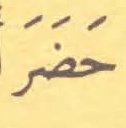 حَضَرَ